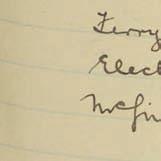 Ferry
Elect
McGin